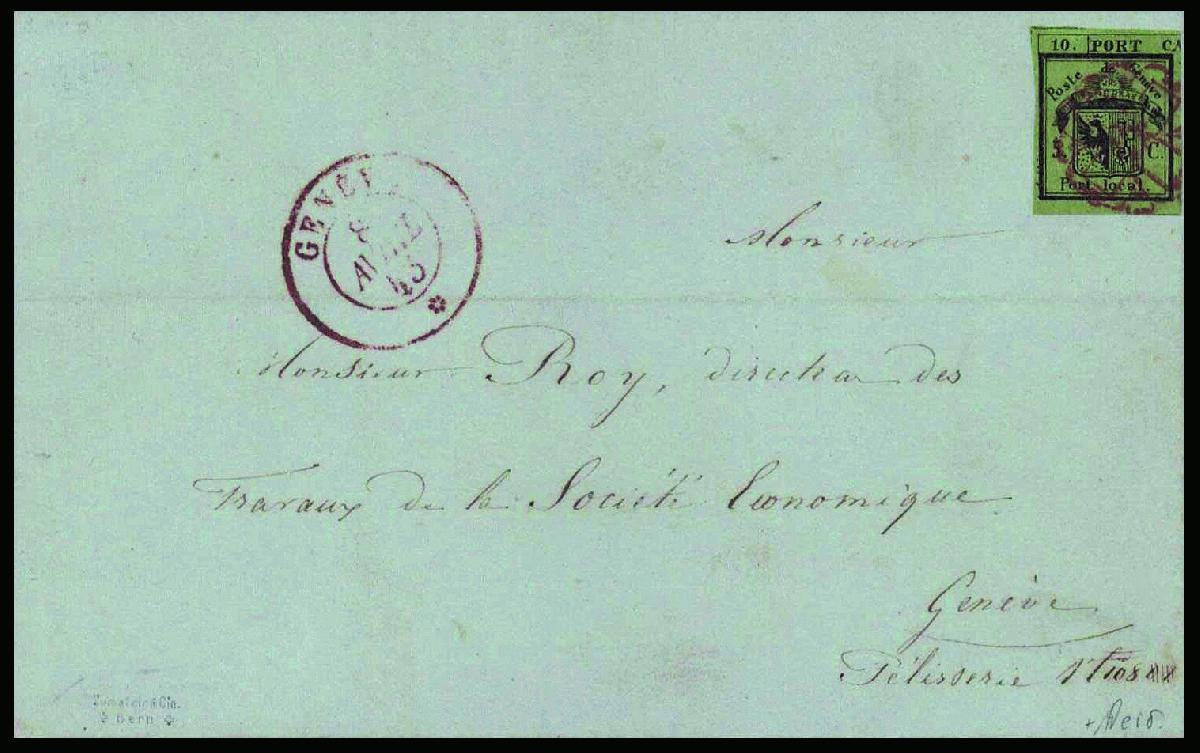 10. PORT CA
Poste de Genève
Port local.
C.
GENÈV
8
AVRIL
43
Monsieur
Monsieur Roy, directeur des
Travaux de la Société Economique
Genève
Pélisserie
Zumstein & Cie.
Bern